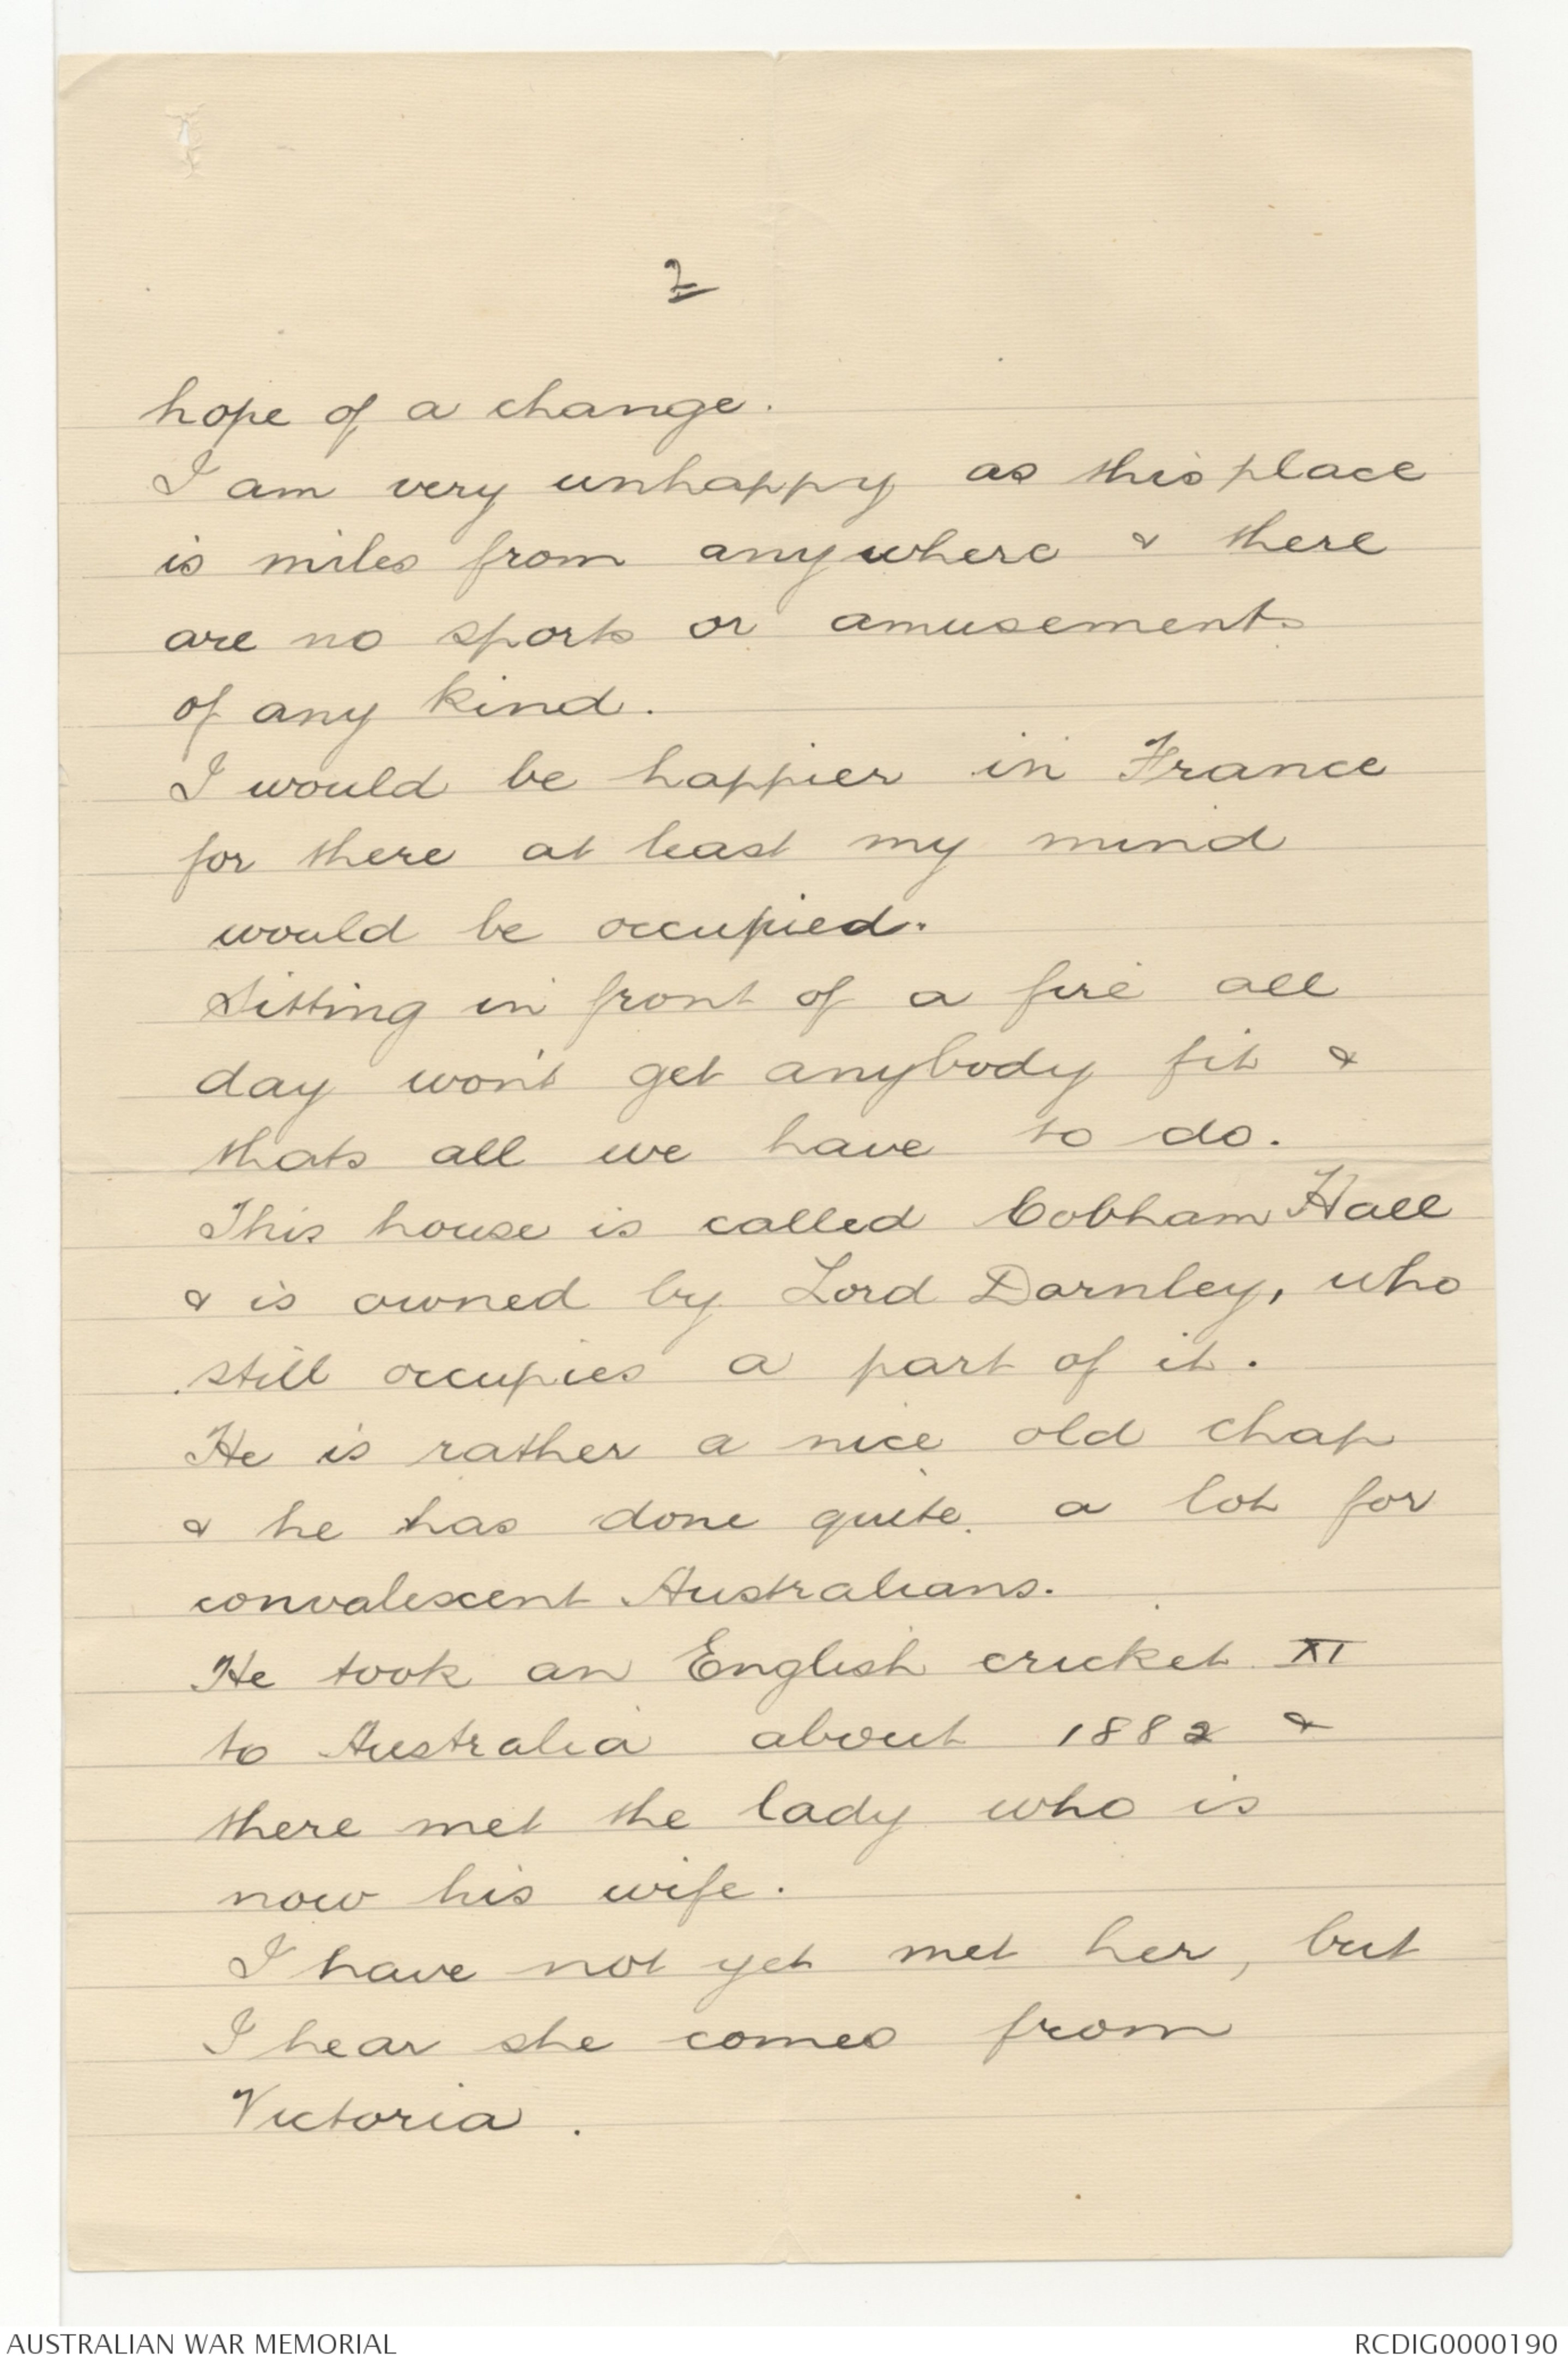 2
hope of a change.
I am very unhappy as this place
is miles from anywhere & there
are no sports or amusements
of any kind.
I would be happier in France
for there at least my mind
would be occupied.
Sitting in front of a fire all
day won't get anybody fit &
thats all we have to do.
This house is called Cobham Hall
& is owned by Lord Darnley, who
still occupies a part of it.
He is rather a nice old chap
& he has done quite a lot for
convalescent Australians.
He took an English cricket XI
to Australia about 1882 &
there met the lady who is
now his wife.
I have not yet met her, but
I hear she comes from
Victoria.
AUSTRALIAN WAR MEMORIAL
RCDIG0000190